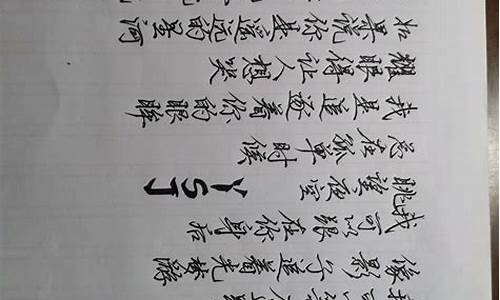 如果说你是遥远的星河
耀眼得让人想哭
我是追逐着你的眼眸
总在孤单时候
眺望夜空 YSJ
我可以跟在你身后
像影子追着光梦游